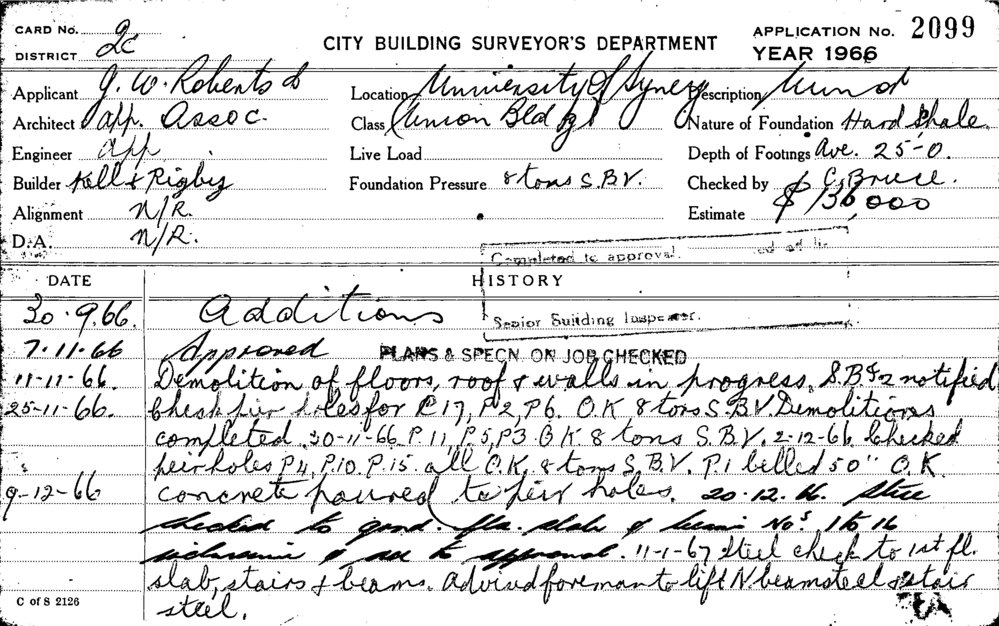 CARD No. 2c
DISTRICT
CITY BUILDING SURVEYOR'S DEPARTMENT
APPLICATION No. 2099
YEAR 1966
Applicant J. W. Roberts &
Location University Of Syney
Description
Architect App. Assoc.
Class Union Bldg
Nature of Foundation Hard Shale
Engineer App
Live Load
Depth of Footings Ave. 25-0.
Builder Kell & Rigby
Foundation Pressure 8 tons S.B.V.
Checked by C. Bruce.
Alignment N/R.
Estimate $ 136,000
D.A. N/R.
Completed to approval.
DATE
HISTORY
30.9.66. Additions
Senior Building Inspector.
7-11-66 Approved PLANS & SPECN. ON JOB CHECKED
11-11-66. Demolition of floors, roof & walls in progress. S.B. notified
25-11-66. Check pier holes for P.17, P.2, P.6. O.K. 8 tons S.B.V. Demolitions
completed. 30-11-66 P.11, P.5, P.3 O.K 8 tons S.B.V. 2-12-66 Checked
peir holes P4, P.10. P.15. all O.K. 8 tons S.B.V. P.1 belled 50" O.K
9-12-66 concrete poured to peir holes. 20.12.66. Steel
checked to grnd. flr. slab & beams Nos. 1 to 16
inclusive & to approval. 11-1-67 Steel check to 1st fl.
slab, stairs & beams. Advived foreman to lift N beam steel & stair
steel.
C of S 2126